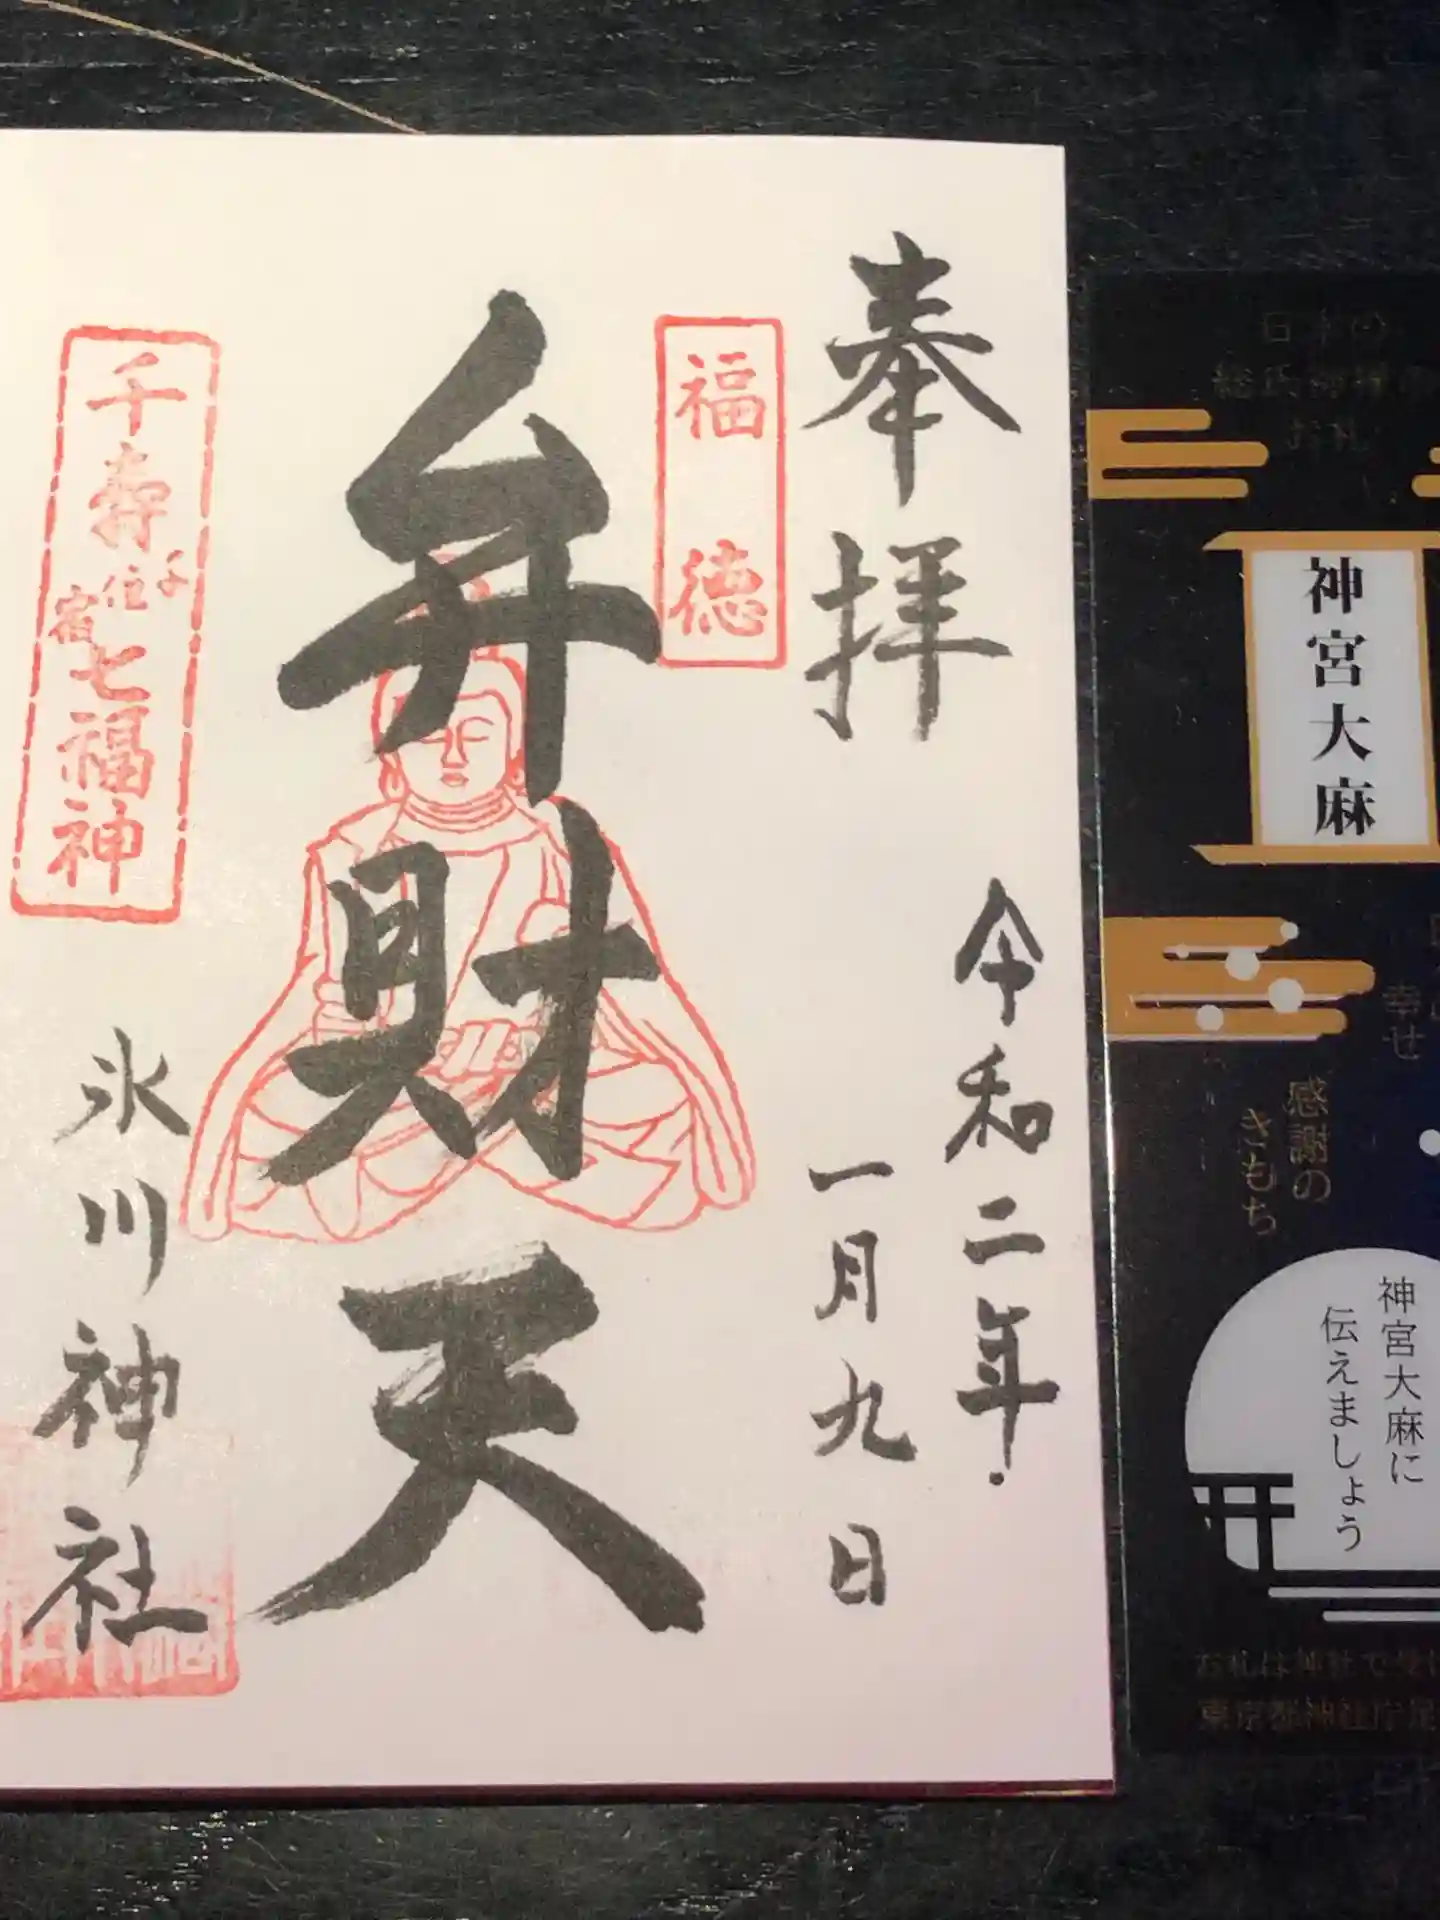 奉拝
令和二年
一月九日
福徳
弁財天
千寿七福神
千住宿
氷川神社
日本の
総氏神様の
お札
神宮大麻
幸せ
感謝の
きもち
神宮大麻に
伝えましょう
お札は神社で受け
東京都神社庁